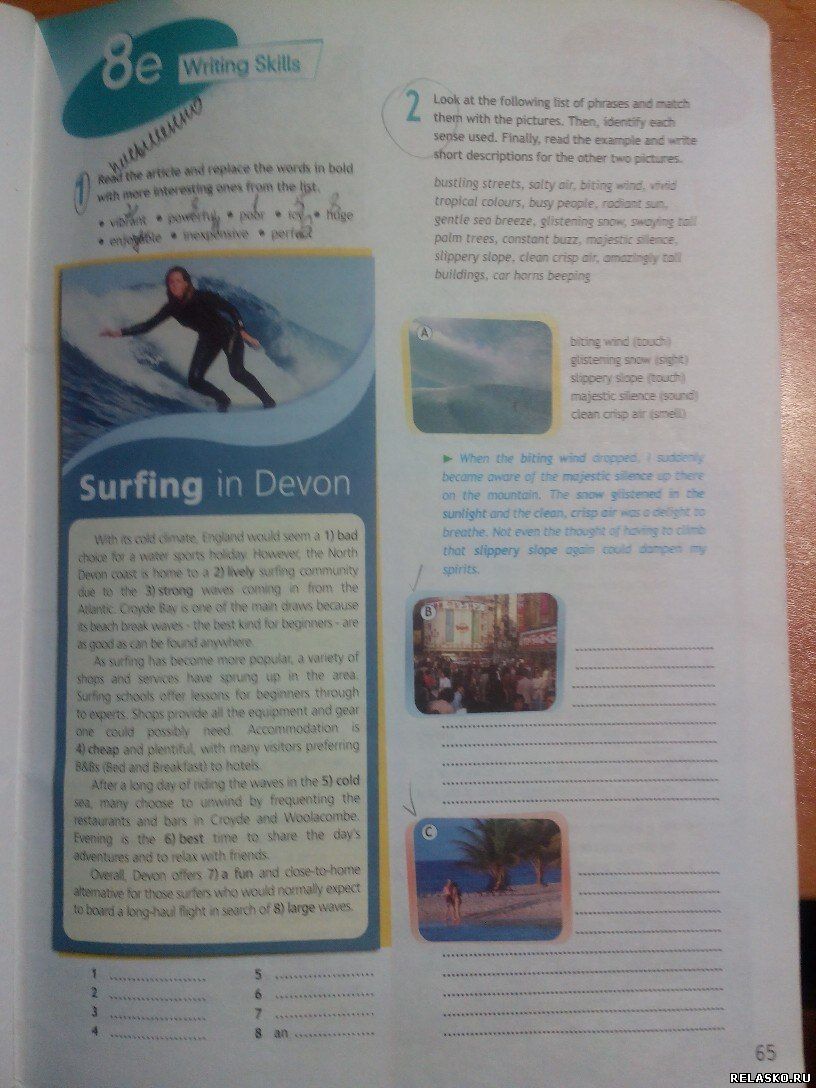 8e Writing Skills
письменно
1 Read the article and replace the words in bold
with more interesting ones from the list.
• vibrant • powerful • poor • icy • huge
• enjoyable • inexpensive • perfect
Surfing in Devon
With its cold climate, England would seem a 1) bad
choice for a water sports holiday. However, the North
Devon coast is home to a 2) lively surfing community
due to the 3) strong waves coming in from the
Atlantic. Croyde Bay is one of the main draws because
its beach break waves - the best kind for beginners - are
as good as can be found anywhere.
As surfing has become more popular, a variety of
shops and services have sprung up in the area.
Surfing schools offer lessons for beginners through
to experts. Shops provide all the equipment and gear
one could possibly need. Accommodation is
4) cheap and plentiful, with many visitors preferring
B&Bs (Bed and Breakfast) to hotels.
After a long day of riding the waves in the 5) cold
sea, many choose to unwind by frequenting the
restaurants and bars in Croyde and Woolacombe.
Evening is the 6) best time to share the day's
adventures and to relax with friends.
Overall, Devon offers 7) a fun and close-to-home
alternative for those surfers who would normally expect
to board a long-haul flight in search of 8) large waves.
1 ....................
2 ....................
3 ....................
4 ....................
5 ....................
6 ....................
7 ....................
8 an ....................
2 Look at the following list of phrases and match
them with the pictures. Then, identify each
sense used. Finally, read the example and write
short descriptions for the other two pictures.
bustling streets, salty air, biting wind, vivid
tropical colours, busy people, radiant sun,
gentle sea breeze, glistening snow, swaying tall
palm trees, constant buzz, majestic silence,
slippery slope, clean crisp air, amazingly tall
buildings, car horns beeping
A
biting wind (touch)
glistening snow (sight)
slippery slope (touch)
majestic silence (sound)
clean crisp air (smell)
► When the biting wind dropped, I suddenly
became aware of the majestic silence up there
on the mountain. The snow glistened in the
sunlight and the clean, crisp air was a delight to
breathe. Not even the thought of having to climb
that slippery slope again could dampen my
spirits.
B
C
65
RELASKO.RU